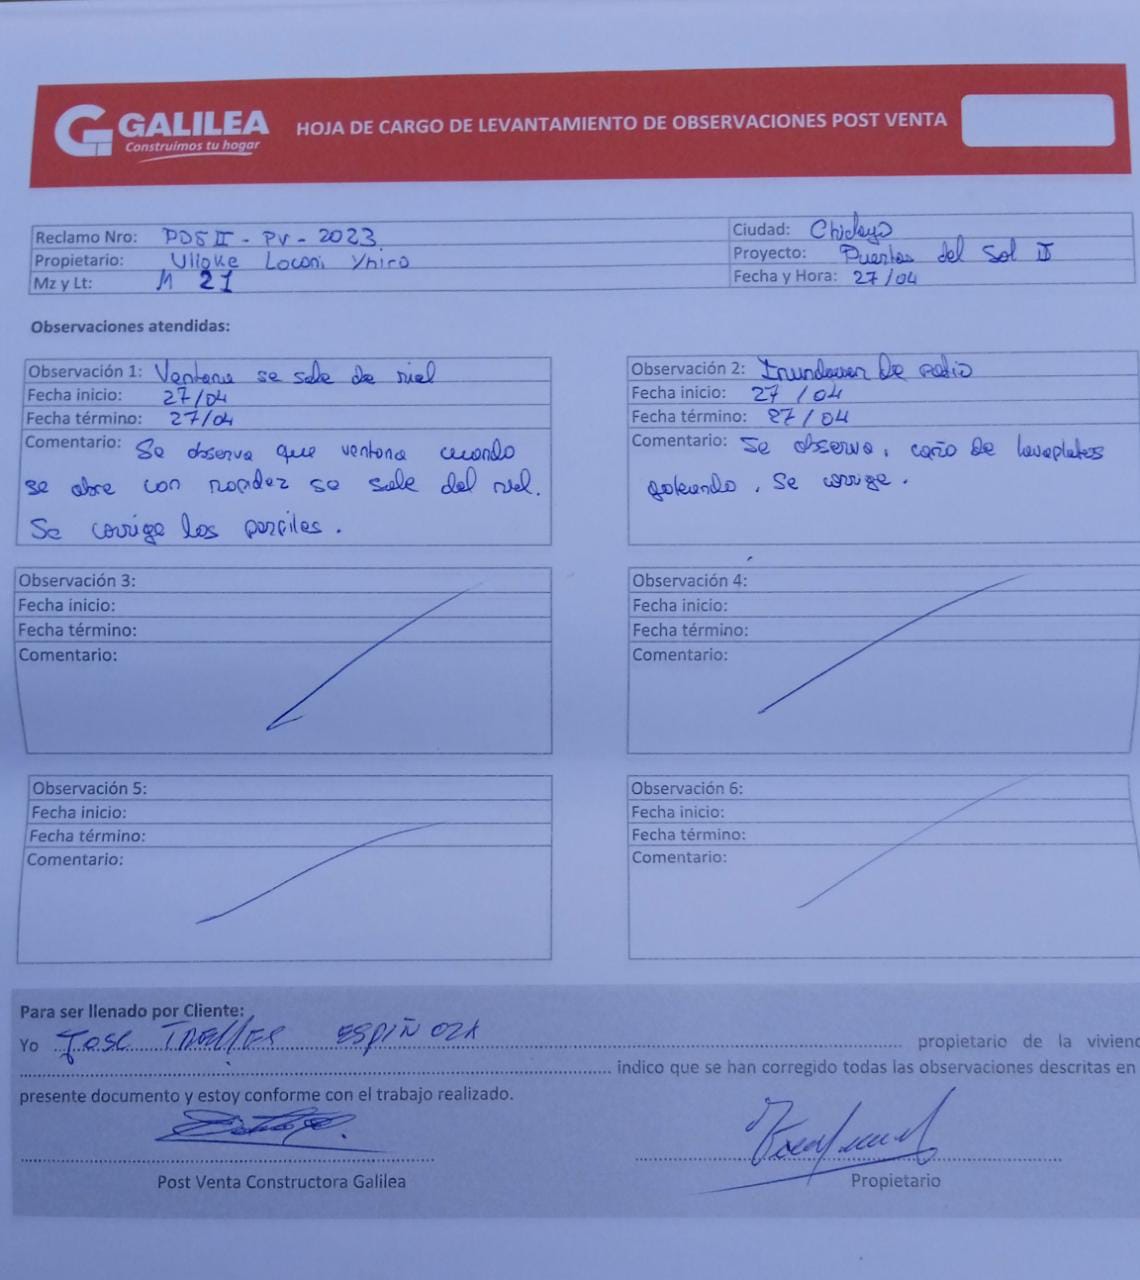 GALILEA
Construimos tu hogar
HOJA DE CARGO DE LEVANTAMIENTO DE OBSERVACIONES POST VENTA
Reclamo Nro: PDS II - PV - 2023
Ciudad: Chiclayo
Propietario: Ulloke Loconi Yhiro
Proyecto: Puertas del Sol II
Mz y Lt: M 21
Fecha y Hora: 27/04
Observaciones atendidas:
Observación 1: Ventana se sale de riel
Fecha inicio: 27/04
Fecha término: 27/04
Comentario: Se observa que ventana cuando
se abre con rapidez se sale del riel.
Se corrige los perfiles.
Observación 2: De patio
Fecha inicio: 27/04
Fecha término: 27/04
Comentario: Se observa, caño de lavaplatos
goteando. Se corrige.
Observación 3:
Fecha inicio:
Fecha término:
Comentario:
Observación 4:
Fecha inicio:
Fecha término:
Comentario:
Observación 5:
Fecha inicio:
Fecha término:
Comentario:
Observación 6:
Fecha inicio:
Fecha término:
Comentario:
Para ser llenado por Cliente:
Yo JOSE ESPIÑOZA propietario de la viviend
indico que se han corregido todas las observaciones descritas en
presente documento y estoy conforme con el trabajo realizado.
Post Venta Constructora Galilea
Propietario